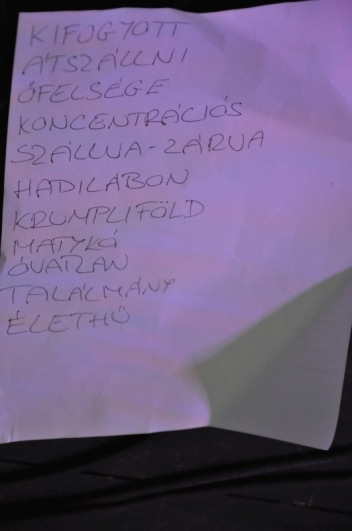 KIFOGYOTT
ÁTSZÁLLNI
ŐFELSÉGE
KONCENTRÁCIÓS
SZÁLLVA-ZÁRVA
HADILÁBON
KRUMPLIFÖLD
MATYKÓ
ÓVATLAN
TALÁLMÁNY
ÉLETHŰ